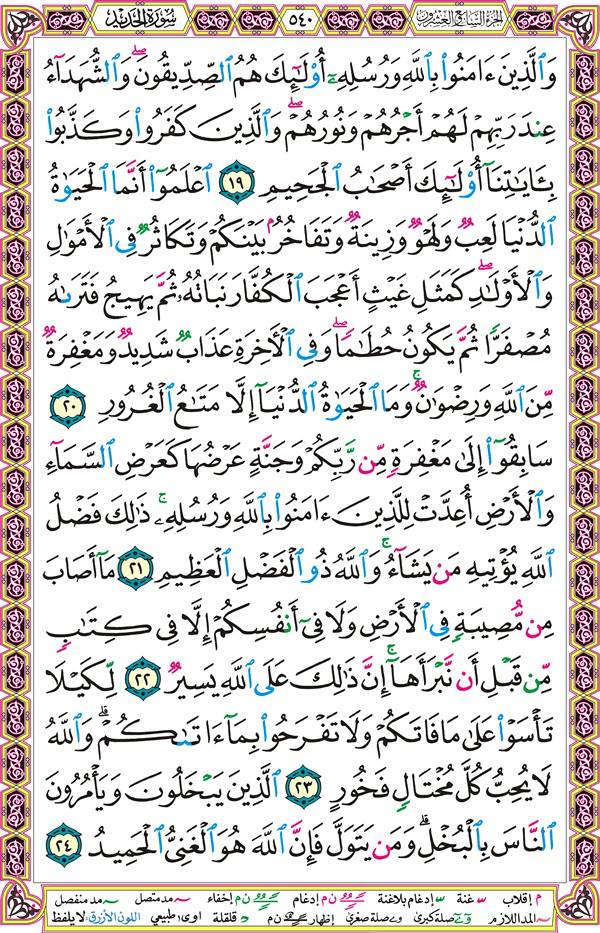 الجزء السابع والعشرون ٥٤٠ سورة الحديد
وَٱلَّذِينَ ءَامَنُوا۟ بِٱللَّهِ وَرُسُلِهِۦٓ أُو۟لَـٰٓئِكَ هُمُ ٱلصِّدِّيقُونَ ۖ وَٱلشُّهَدَآءُ
عِندَ رَبِّهِمْ لَهُمْ أَجْرُهُمْ وَنُورُهُمْ ۖ وَٱلَّذِينَ كَفَرُوا۟ وَكَذَّبُوا۟
بِـَٔايَـٰتِنَآ أُو۟لَـٰٓئِكَ أَصْحَـٰبُ ٱلْجَحِيمِ ١٩ ٱعْلَمُوٓا۟ أَنَّمَا ٱلْحَيَوٰةُ
ٱلدُّنْيَا لَعِبٌ وَلَهْوٌ وَزِينَةٌ وَتَفَاخُرٌۢ بَيْنَكُمْ وَتَكَاثُرٌ فِى ٱلْأَمْوَٰلِ
وَٱلْأَوْلَـٰدِ ۖ كَمَثَلِ غَيْثٍ أَعْجَبَ ٱلْكُفَّارَ نَبَاتُهُۥ ثُمَّ يَهِيجُ فَتَرَىٰهُ
مُصْفَرًّا ثُمَّ يَكُونُ حُطَـٰمًا ۖ وَفِى ٱلْـَٔاخِرَةِ عَذَابٌ شَدِيدٌ وَمَغْفِرَةٌ
مِّنَ ٱللَّهِ وَرِضْوَٰنٌ ۚ وَمَا ٱلْحَيَوٰةُ ٱلدُّنْيَآ إِلَّا مَتَـٰعُ ٱلْغُرُورِ ٢٠
سَابِقُوٓا۟ إِلَىٰ مَغْفِرَةٍ مِّن رَّبِّكُمْ وَجَنَّةٍ عَرْضُهَا كَعَرْضِ ٱلسَّمَآءِ
وَٱلْأَرْضِ أُعِدَّتْ لِلَّذِينَ ءَامَنُوا۟ بِٱللَّهِ وَرُسُلِهِۦ ۚ ذَٰلِكَ فَضْلُ
ٱللَّهِ يُؤْتِيهِ مَن يَشَآءُ ۚ وَٱللَّهُ ذُو ٱلْفَضْلِ ٱلْعَظِيمِ ٢١ مَآ أَصَابَ
مِن مُّصِيبَةٍ فِى ٱلْأَرْضِ وَلَا فِىٓ أَنفُسِكُمْ إِلَّا فِى كِتَـٰبٍ
مِّن قَبْلِ أَن نَّبْرَأَهَآ ۚ إِنَّ ذَٰلِكَ عَلَى ٱللَّهِ يَسِيرٌ ٢٢ لِّكَيْلَا
تَأْسَوْا۟ عَلَىٰ مَا فَاتَكُمْ وَلَا تَفْرَحُوا۟ بِمَآ ءَاتَىٰكُمْ ۗ وَٱللَّهُ
لَا يُحِبُّ كُلَّ مُخْتَالٍ فَخُورٍ ٢٣ ٱلَّذِينَ يَبْخَلُونَ وَيَأْمُرُونَ
ٱلنَّاسَ بِٱلْبُخْلِ ۗ وَمَن يَتَوَلَّ فَإِنَّ ٱللَّهَ هُوَ ٱلْغَنِىُّ ٱلْحَمِيدُ ٢٤
م إقلاب غنة إدغام بلاغنة ن م إدغام ن م إخفاء مد متصل مد منفصل
المد اللازم صلة كبرى صلة صغرى إظهار ن م قلقلة اوى؛ طبيعي اللون الأزرق، لا يلفظ